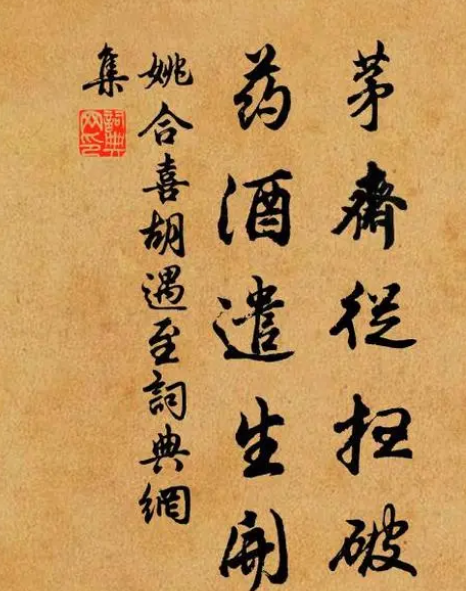 茅齋從扫破
药酒遣生開
姚合喜胡遇至詞典網
集
詞典
网印